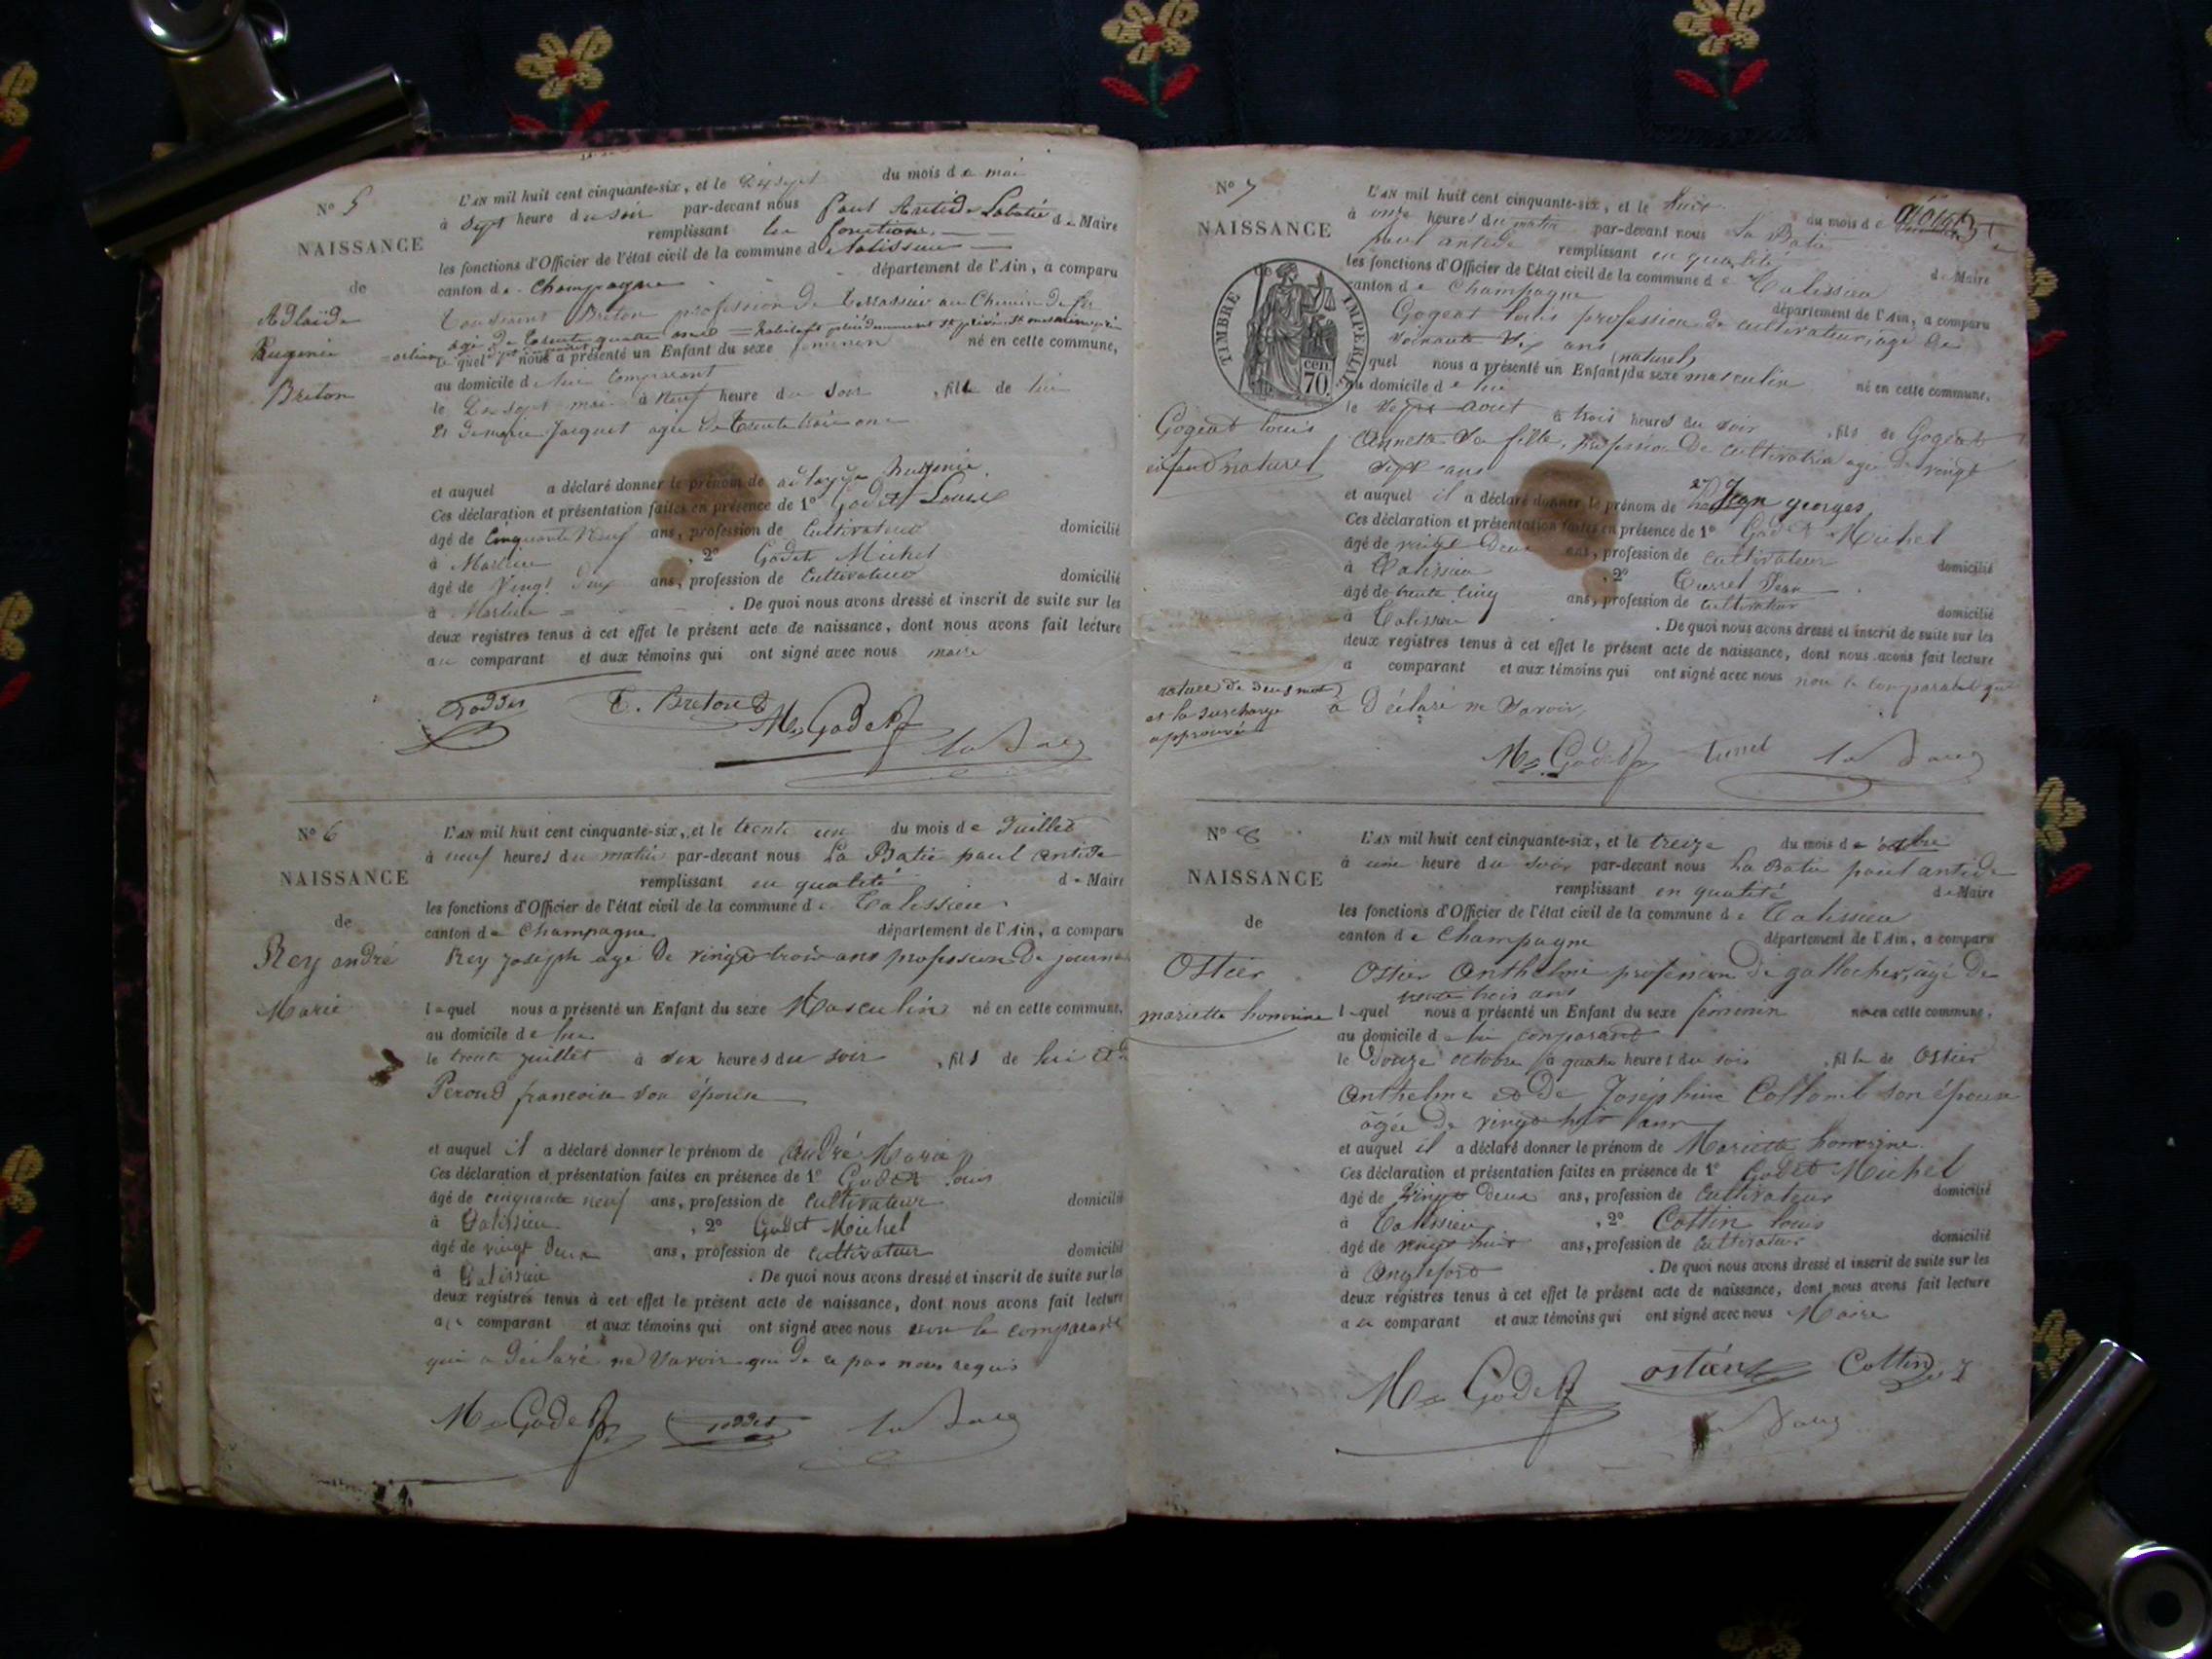 N° 5
NAISSANCE
de
Adlaïde
Eugenie
Breton
L'AN mil huit cent cinquante-six, et le dix sept du mois de mai
à sept heure du soir par-devant nous Paul Antide Labatie
remplissant les fonctions de Maire
les fonctions d'Officier de l'état civil de la commune de Talissieu
canton de Champagne département de l'Ain, a comparu
Toussaint Breton profession de terrassier au Chemin de fer
agé de trente quatre ans
le quel nous a présenté un Enfant du sexe feminin né en cette commune,
au domicile de lui comparant
le dix sept mai à neuf heure du soir , fille de lui
et de marie Jacquet agée de trente trois ans
et auquel a déclaré donner le prénom de Eugenie
Ces déclaration et présentation faites en présence de 1° Godet Louis
âgé de Cinquante Neuf ans, profession de Cultivateur domicilié
à , 2° Godet Michel
âgé de Vingt deux ans, profession de Cultivateur domicilié
à . De quoi nous avons dressé et inscrit de suite sur les
deux registres tenus à cet effet le présent acte de naissance, dont nous avons fait lecture
au comparant et aux témoins qui ont signé avec nous maire
T. Breton
M Godet
N° 6
NAISSANCE
de
Rey andré
Marie
L'AN mil huit cent cinquante-six, et le trente un du mois de Juillet
à neuf heures du matin par-devant nous La Batie paul antide
remplissant en qualité de Maire
les fonctions d'Officier de l'état civil de la commune de Talissieu
canton de Champagne département de l'Ain, a comparu
Rey joseph agé de vingt trois ans profession de journa
lequel nous a présenté un Enfant du sexe Masculin né en cette commune,
au domicile de lui
le trente juillet à six heures du soir , fils de lui et de
Peroud francoise son épouse
et auquel il a déclaré donner le prénom de André Marie
Ces déclaration et présentation faites en présence de 1° Godet louis
âgé de cinquante neuf ans, profession de cultivateur domicilié
à Talissieu , 2° Godet Michel
âgé de vingt deux ans, profession de cultivateur domicilié
à Talissieu . De quoi nous avons dressé et inscrit de suite sur les
deux registres tenus à cet effet le présent acte de naissance, dont nous avons fait lecture
au comparant et aux témoins qui ont signé avec nous non le comparant
qui a déclaré ne savoir
M Godet
N° 7
NAISSANCE
TIMBRE IMPERIAL
70 cen
Gogeat louis
enfant naturel
L'AN mil huit cent cinquante-six, et le huit du mois de août
à onze heures du matin par-devant nous La Batie
paul antide remplissant en qualité de Maire
les fonctions d'Officier de l'état civil de la commune de Talissieu
canton de Champagne département de l'Ain, a comparu
Gogeat louis profession de cultivateur, agé de
soixante six ans
quel nous a présenté un Enfant (naturel) du sexe masculin né en cette commune,
au domicile de lui
le sept aout à trois heures du soir , fils de Gogeat
Annette sa fille, profession de cultivatrice agé de vingt
sept ans
et auquel il a déclaré donner le prénom de Jean georges
Ces déclaration et présentation faites en présence de 1° Godet Michel
âgé de vingt deux ans, profession de cultivateur domicilié
à Talissieu , 2° Turrel Jean
âgé de trente cinq ans, profession de cultivateur domicilié
à Talissieu . De quoi nous avons dressé et inscrit de suite sur les
deux registres tenus à cet effet le présent acte de naissance, dont nous avons fait lecture
a comparant et aux témoins qui ont signé avec nous non le comparant qui
a déclaré ne savoir
rature de deux mots
et la surcharge
approuvé
M Godet turrel
N° 8
NAISSANCE
de
Ostier
mariette honorine
L'AN mil huit cent cinquante-six, et le treize du mois de octobre
à une heure du soir par-devant nous La Batie paul antide
remplissant en qualité de Maire
les fonctions d'Officier de l'état civil de la commune de Talissieu
canton de Champagne département de l'Ain, a comparu
Ostier Anthelme profession de gallocher, âgé de
trente trois ans
lequel nous a présenté un Enfant du sexe féminin né en cette commune,
au domicile de lui comparant
le Douze octobre à quatre heures du soir , fille de Ostier
Anthelme et de Joséphine Collomb son épouse
âgée de vingt huit ans
et auquel il a déclaré donner le prénom de Mariette honorine
Ces déclaration et présentation faites en présence de 1° Godet Michel
âgé de vingt deux ans, profession de cultivateur domicilié
à Talissieu , 2° Cottin louis
âgé de vingt huit ans, profession de cultivateur domicilié
à Anglefort . De quoi nous avons dressé et inscrit de suite sur les
deux registres tenus à cet effet le présent acte de naissance, dont nous avons fait lecture
au comparant et aux témoins qui ont signé avec nous Maire
M Godet Cottin